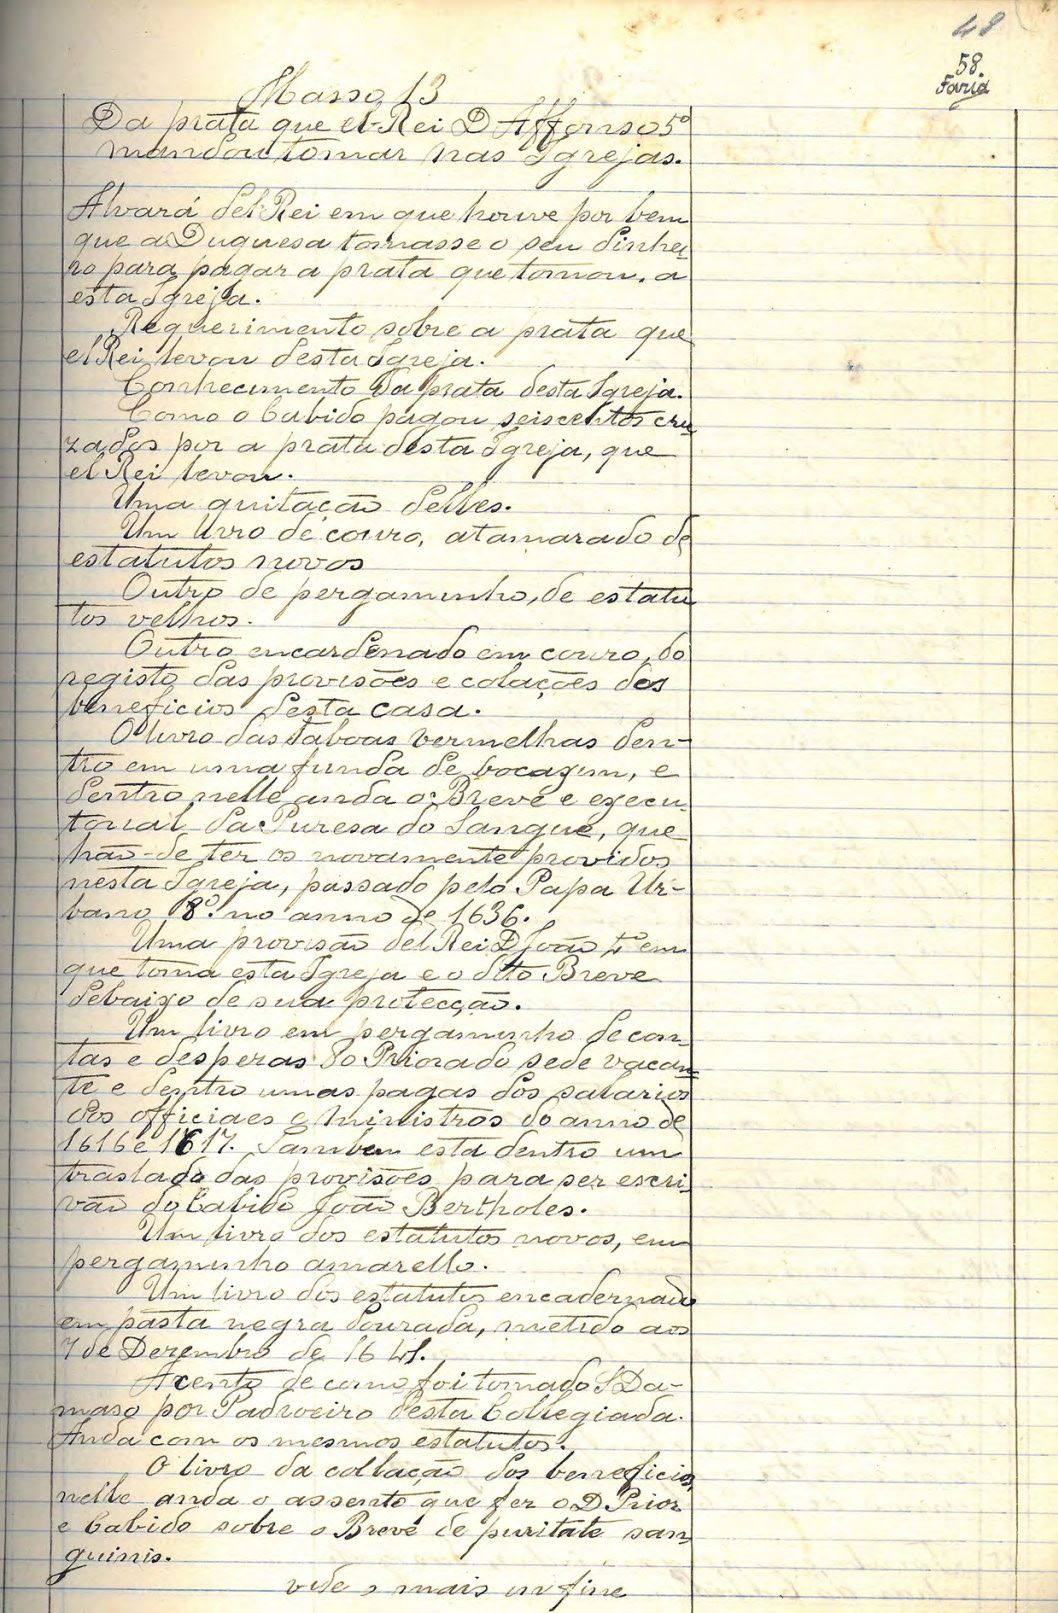 48
58.
Faria
Masso 13
Da prata que el-Rei D Affonso 5º
mandou tomar nas Igrejas.
Alvará del Rei em que houve por bem
que a Duquesa tomasse o seu dinhei
ro para pagar a prata que tomou, a
esta Igreja.
Requerimento sobre a prata que
el Rei levou desta Igreja.
Conhecimento da prata desta Igreja.
Como o Cabido pagou seiscentos cru
zados por a prata desta Igreja, que
el Rei levou.
Uma quitação delles.
Um livro de couro, atamarado de
estatutos novos
Outro de pergaminho, de estatu
tos velhos.
Outro encardenado em couro, do
registo das provisões e colações dos
beneficios desta casa.
O livro das Taboas vermelhas den-
tro em uma funda de bocaxim, e
dentro nelle anda o Breve e execu-
torial da Puresa do Sangue, que
hão-de ter os novamente providos
nesta Igreja, passado pelo Papa Ur-
bano 8º. no anno de 1636.
Uma provisão del Rei D João 4º em
que toma esta Igreja e o dito Breve
debaixo de sua protecção.
Um livro em pergaminho de con
tas e despezas do Priorado sede vacan
te e dentro umas pagas dos salarios
dos officiaes e ministros do anno de
1616 e 1617. Tambem está dentro um
traslado das provisões para ser escri
vão do Cabido João Bertholes.
Um livro dos estatutos novos, em
pergaminho amarello.
Um livro dos estatutos encadernado
em pasta negra dourada, metido aos
7 de Dezembro de 1641.
Acento de como foi tomado S Da-
maso por Padroeiro desta Collegiada.
Anda com os mesmos estatutos.
O livro da collação dos beneficios,
nelle anda o assento que fez o D Prior
e Cabido sobre o Breve de puritate san
guinis.
vide o mais in fine